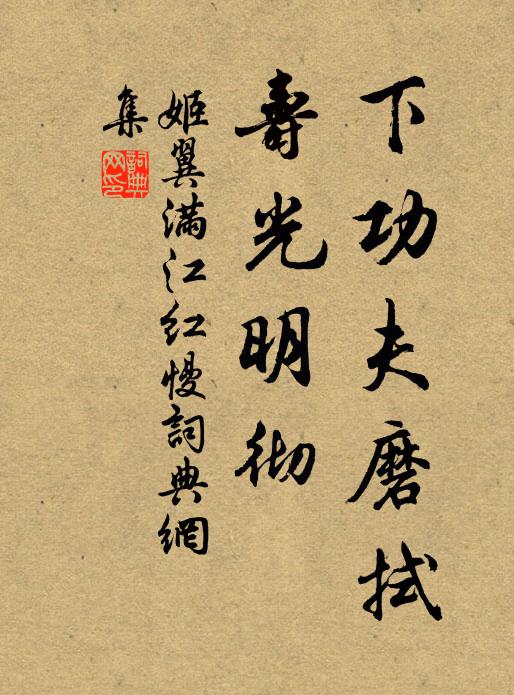 下功夫磨拭
壽光明彻
姬翼滿江紅慢詞典網
集
詞典網印